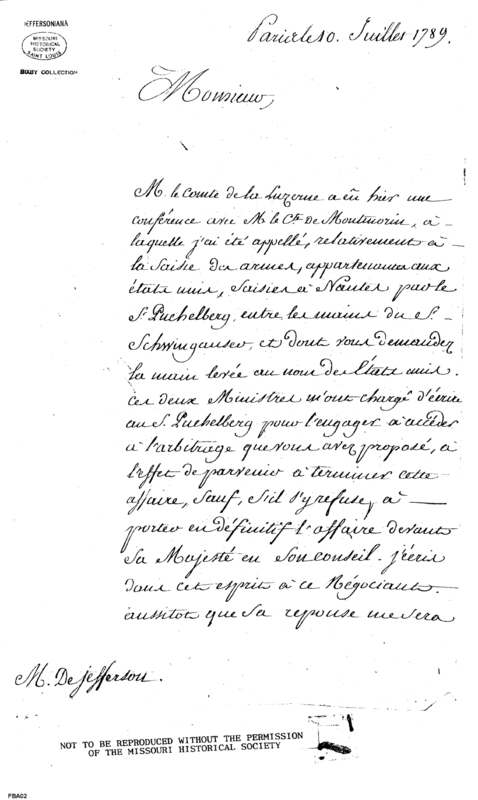 JEFFERSONIANA
MISSOURI
HISTORICAL
SOCIETY
SAINT LOUIS
BIXBY COLLECTION
Paris le 10. Juillet 1789.
Monsieur,
M. le Comte de la Luzerne a eû hier une
conférence avec M. le Cte. De Montmorin, à
laquelle j'ai été appellé, relativement à
la Saisie des armes, appartenantes aux
états unis, Saisies à Nantes par le
Sr. Puchelberg, entre les mains du Sr.
Schwingauser, et dont vous demandez
la main levée au nom des Etats unis.
Ces deux Ministres m'ont chargé d'écrire
au S. Puchelberg pour l'engager à accéder
à l'arbitrage que vous avez proposé, à
l'effet de parvenir à terminer cette
affaire, Sauf, S'il S'y refuse, à
porter en définitif l'affaire devant
Sa Majesté en Son conseil. j'écris
dans cet esprit à ce Négociant.
aussitot que Sa reponse me Sera
M. De Jefferson.
NOT TO BE REPRODUCED WITHOUT THE PERMISSION
OF THE MISSOURI HISTORICAL SOCIETY
FBA02